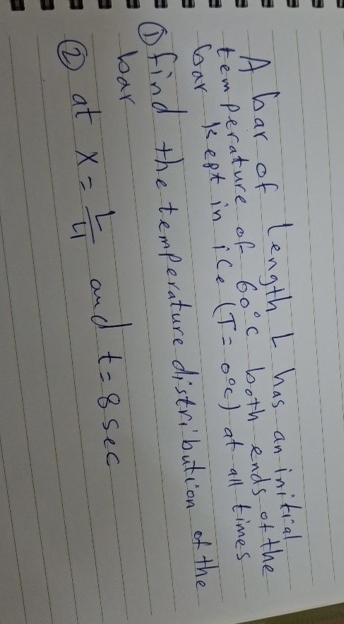 A bar of Length L has an initial
temperature of 60°C both ends of the
bar kept in ice (T = 0°C) at all times
① find the temperature distribution of the
bar
② at X = L/4 and t = 8 sec